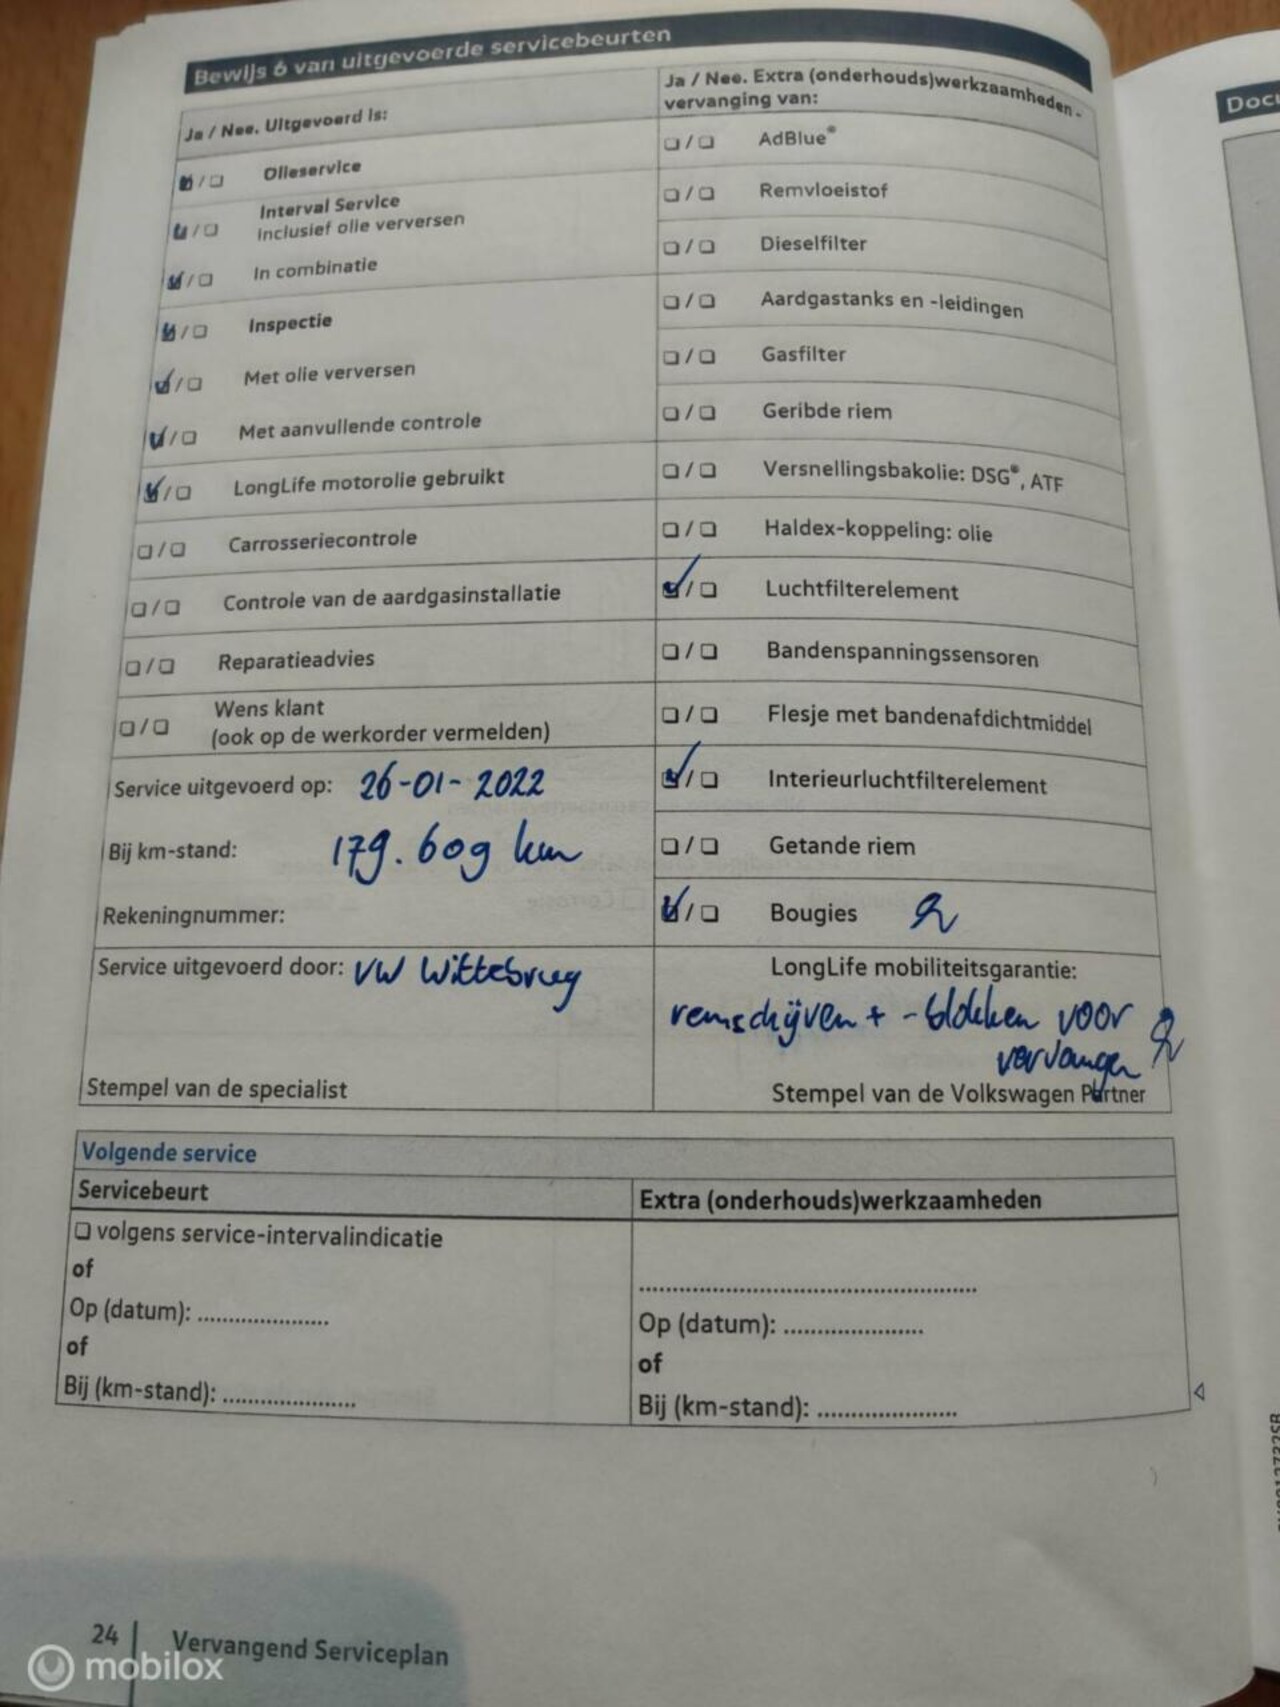 Bewijs 6 van uitgevoerde servicebeurten
Ja / Nee. Uitgevoerd is:
Olieservice
Interval Service
Inclusief olie verversen
In combinatie
Inspectie
Met olie verversen
Met aanvullende controle
LongLife motorolie gebruikt
Carrosseriecontrole
Controle van de aardgasinstallatie
Reparatieadvies
Wens klant
(ook op de werkorder vermelden)
Service uitgevoerd op: 26-01-2022
Bij km-stand: 179.609 km
Rekeningnummer:
Service uitgevoerd door: VW Wittebrug
Stempel van de specialist
Ja / Nee. Extra (onderhouds)werkzaamheden -
vervanging van:
AdBlue®
Remvloeistof
Dieselfilter
Aardgastanks en -leidingen
Gasfilter
Geribde riem
Versnellingsbakolie: DSG®, ATF
Haldex-koppeling: olie
Luchtfilterelement
Bandenspanningssensoren
Flesje met bandenafdichtmiddel
Interieurluchtfilterelement
Getande riem
Bougies
LongLife mobiliteitsgarantie:
remschijven + -blokken voor
vervangen
Stempel van de Volkswagen Partner
Volgende service
Servicebeurt
volgens service-intervalindicatie
of
Op (datum): .....................
of
Bij (km-stand): .....................
Extra (onderhouds)werkzaamheden
......................................................
Op (datum): ......................
of
Bij (km-stand): ......................
24 | Vervangend Serviceplan
mobilox
Docu